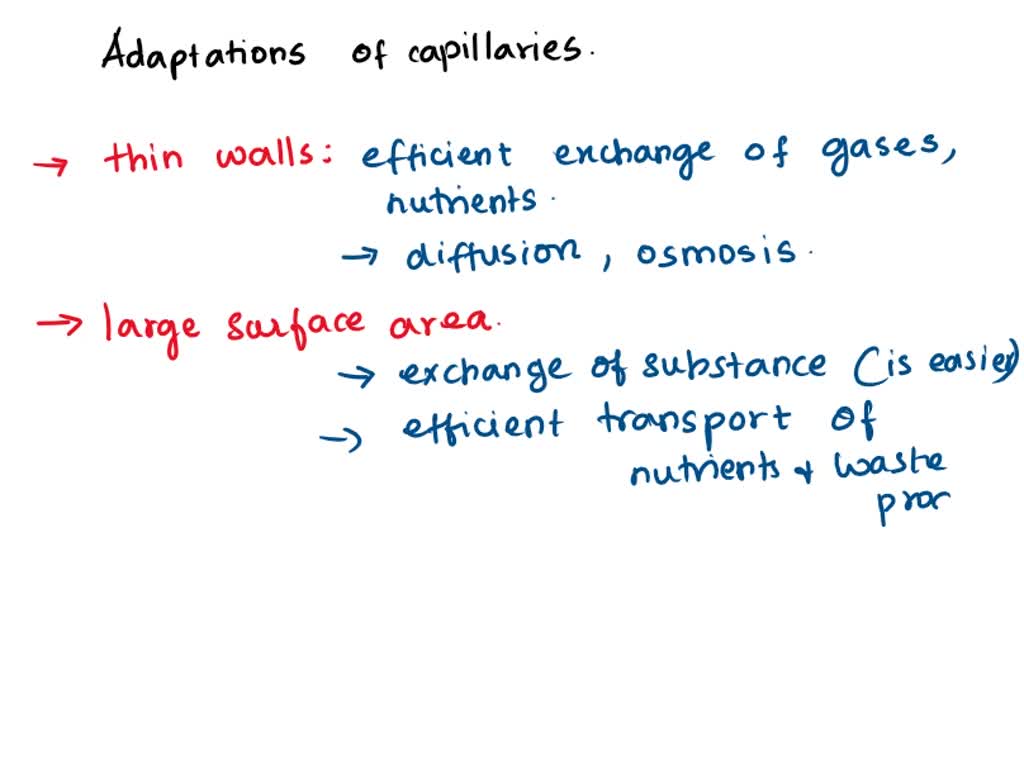 Adaptations of capillaries.
→ thin walls: efficient exchange of gases,
nutrients.
→ diffusion, osmosis.
→ large surface area.
→ exchange of substance (is easier)
→ efficient transport of
nutrients + waste
proc